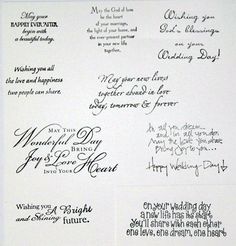 May your
HAPPILY EVER AFTER
begin with
a beautiful today.
May the God of love
be the heart
of your marriage,
the light of your home, and
the ever-present partner
in your new life
together.
Wishing you
God's Blessings
on your
Wedding Day!
Wishing you all
the love and happiness
two people can share.
May your new lives
together should in love
today, tomorrow & forever
MAY THIS
Wonderful Day
BRING
Joy & Love
INTO YOUR
Heart
In all you dream
and in all you do
may the love you share
Happy Wedding Day!
Wishing you
A Bright
and Shining
future.
On your wedding day
a new life has its start
You'll share with each other
one love, one dream, one heart